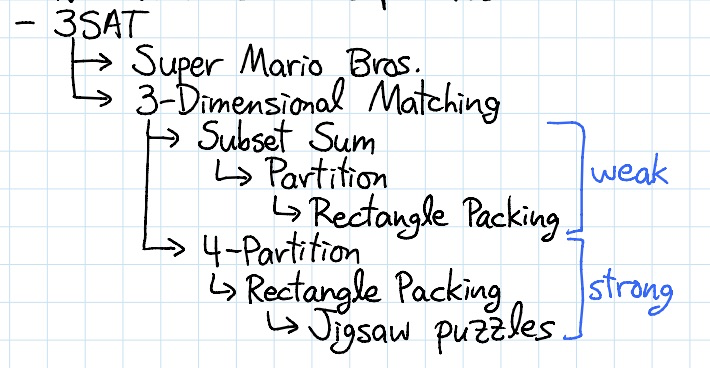 - 3SAT
Super Mario Bros.
3-Dimensional Matching
Subset Sum
Partition
weak
Rectangle Packing
4-Partition
Rectangle Packing
strong
Jigsaw puzzles